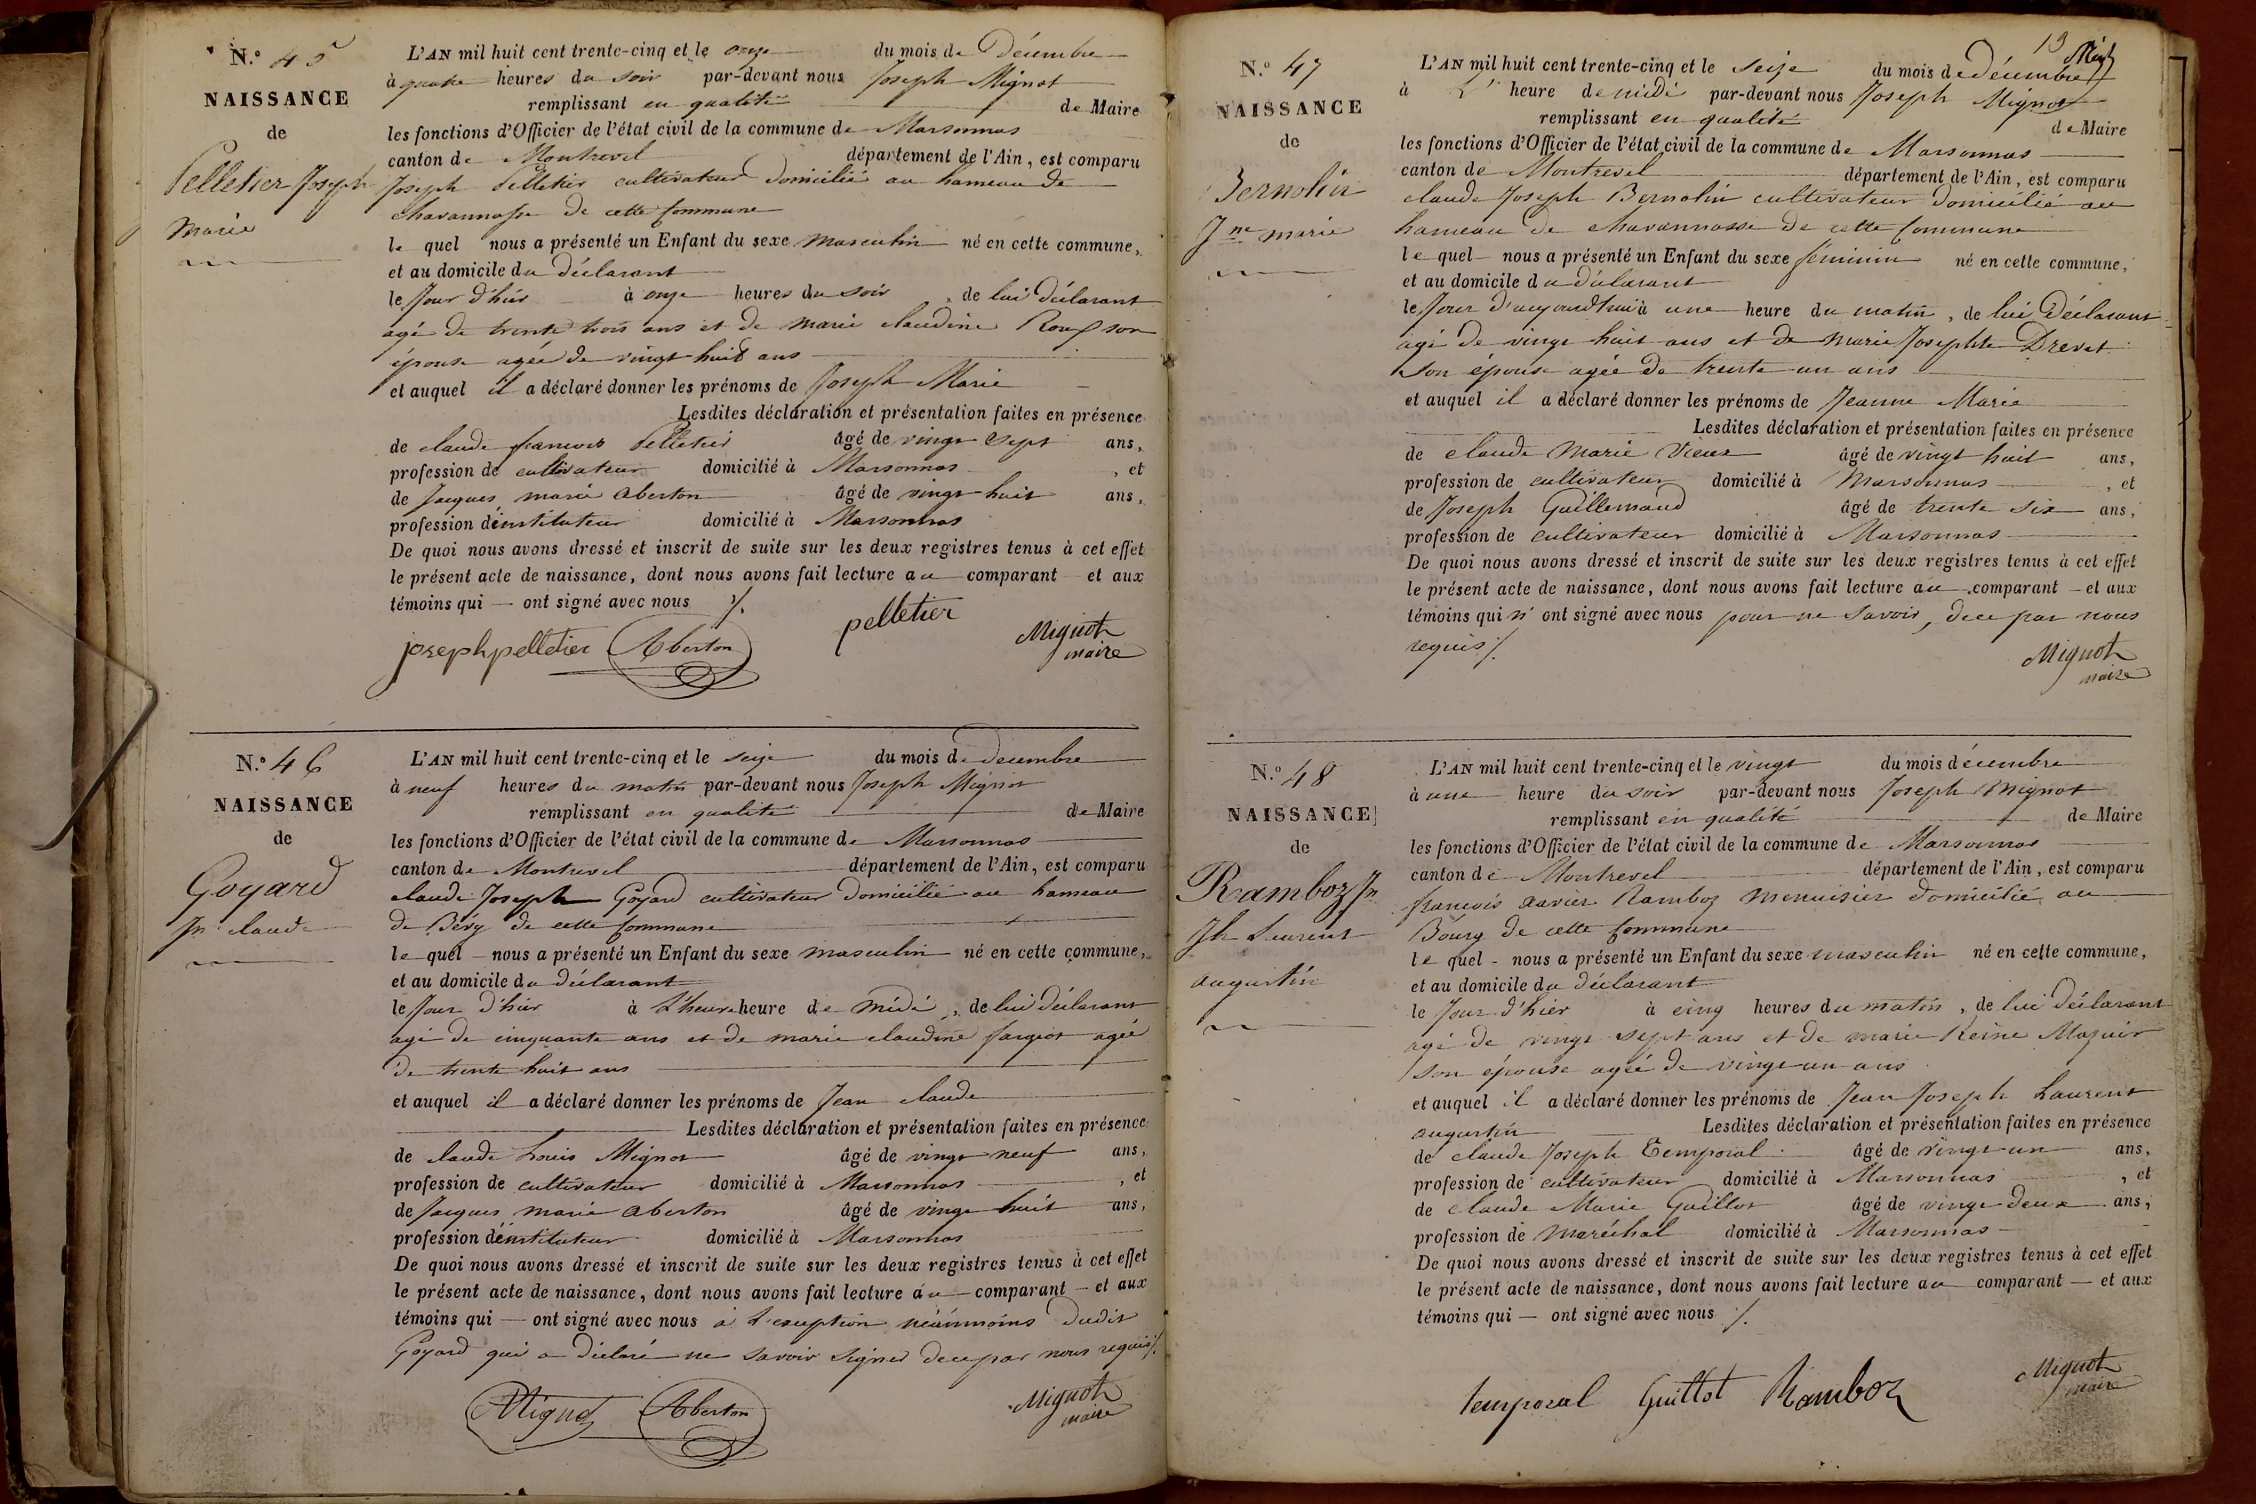 N.º 45
NAISSANCE
de
Pelletier Joseph
Marie
L'AN mil huit cent trente-cinq et le onze du mois de Décembre
à quatre heures du soir par-devant nous Joseph Mignot
remplissant en qualité de Maire
les fonctions d'Officier de l'état civil de la commune de Marsonnas
canton de Montrevel département de l'Ain, est comparu
Joseph Pelletier cultivateur domicilié au hameau de
chavannosse de cette Commune
le quel nous a présenté un Enfant du sexe masculin né en cette commune,
et au domicile du déclarant
le Jour d'hier à onze heures du soir, de lui Déclarant
agé de trente trois ans et de marie claudine Roux son
épouse agée de vingt huit ans
et auquel il a déclaré donner les prénoms de Joseph Marie
Lesdites déclaration et présentation faites en présence
de claude francois Pelletier âgé de vingt sept ans,
profession de cultivateur domicilié à Marsonnas, et
de Jacques marie Aberton âgé de vingt huit ans,
profession d'instituteur domicilié à Marsonnas
De quoi nous avons dressé et inscrit de suite sur les deux registres tenus à cet effet
le présent acte de naissance, dont nous avons fait lecture au comparant et aux
témoins qui — ont signé avec nous ./.
joseph pelletier Aberton pelletier Mignot
maire
N.º 46
NAISSANCE
de
Goyard
Jn claude
L'AN mil huit cent trente-cinq et le seize du mois de decembre
à neuf heures du matin par-devant nous Joseph Mignot
remplissant en qualité de Maire
les fonctions d'Officier de l'état civil de la commune de Marsonnas
canton de Montrevel département de l'Ain, est comparu
claude Joseph Goyard cultivateur domicilié au hameau
de Béry de cette Commune
le quel nous a présenté un Enfant du sexe masculin né en cette commune,
et au domicile du déclarant
le Jour d'hier à l'heure heure de midi, de lui déclarant
agé de cinquante ans et de marie claudine fargeot agée
de trente huit ans
et auquel il a déclaré donner les prénoms de Jean claude
Lesdites déclaration et présentation faites en présence
de claude Louis Mignot âgé de vingt neuf ans,
profession de cultivateur domicilié à Marsonnas, et
de Jacques marie Aberton âgé de vingt huit ans,
profession d'instituteur domicilié à Marsonnas
De quoi nous avons dressé et inscrit de suite sur les deux registres tenus à cet effet
le présent acte de naissance, dont nous avons fait lecture au comparant — et aux
témoins qui — ont signé avec nous à l'exception néanmoins dudit
Goyard qui a déclaré ne savoir signer de ce par nous requis ./.
Mignot Aberton Mignot
maire
19
N.º 47
NAISSANCE
de
Bernolin
Jne marie
L'AN mil huit cent trente-cinq et le seize du mois de décembre
à l' heure de midi par-devant nous Joseph Mignot
remplissant en qualité de Maire
les fonctions d'Officier de l'état civil de la commune de Marsonnas
canton de Montrevel département de l'Ain, est comparu
claude Joseph Bernolin cultivateur domicilié au
hameau de chavannosse de cette Commune
le quel nous a présenté un Enfant du sexe féminin né en cette commune,
et au domicile du déclarant
le Jour d'aujourd'hui à une heure du matin, de lui Déclarant
agé de vingt huit ans et de marie Josephte Drevet
son épouse agée de trente un ans
et auquel il a déclaré donner les prénoms de Jeanne Marie
Lesdites déclaration et présentation faites en présence
de claude Marie Vieux âgé de vingt huit ans,
profession de cultivateur domicilié à Marsonnas, et
de Joseph Guillemaud âgé de trente six ans,
profession de cultivateur domicilié à Marsonnas
De quoi nous avons dressé et inscrit de suite sur les deux registres tenus à cet effet
le présent acte de naissance, dont nous avons fait lecture au comparant — et aux
témoins qui n' ont signé avec nous pour ne savoir, de ce par nous
requis ./.
Mignot
maire
N.º 48
NAISSANCE
de
Ramboz Jn
Jh Laurent
augustin
L'AN mil huit cent trente-cinq et le vingt du mois décembre
à une heure du soir par-devant nous Joseph Mignot
remplissant en qualité de Maire
les fonctions d'Officier de l'état civil de la commune de Marsonnas
canton de Montrevel département de l'Ain, est comparu
francois xavier Ramboz menuisier domicilié au
Bourg de cette Commune
le quel - nous a présenté un Enfant du sexe masculin né en cette commune,
et au domicile du déclarant
le Jour d'hier à cinq heures du matin, de lui déclarant
agé de vingt sept ans et de marie Reine Mazuir
son épouse agée de vingt un ans
et auquel il a déclaré donner les prénoms de Jean Joseph Laurent
augustin Lesdites déclaration et présentation faites en présence
de claude Joseph Temporal âgé de vingt un ans,
profession de cultivateur domicilié à Marsonnas, et
de claude Marie Guillot âgé de vingt deux ans,
profession de maréchal domicilié à Marsonnas
De quoi nous avons dressé et inscrit de suite sur les deux registres tenus à cet effet
le présent acte de naissance, dont nous avons fait lecture au comparant — et aux
témoins qui — ont signé avec nous ./.
temporal Guillot Ramboz Mignot
maire